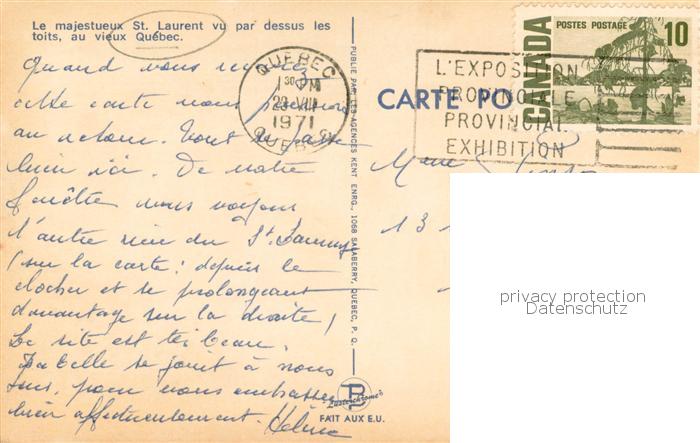 Le majestueux St. Laurent vu par dessus les
toits, au vieux Québec.
Quand vous recevrez
cette carte nous penserons
au retour. Tout se passe
bien ici. De notre
fenêtre nous voyons
l'autre rive du St. Laurent
(sur la carte: depuis le
clocher et se prolongeant
davantage sur la droite)
Le site est très beau.
Isabelle se joint à nous
tous, pour vous embrasser
bien affectueusement. Hélène
PUBLIE PAR LES AGENCES KENT ENRG., 1068 SALABERRY, QUEBEC, P. Q.
QUEBEC
1 30 PM
23 VIII
1971
QUEBEC
CARTE PO
L'EXPOSITION
PROVINCIALE
PROVINCIAL
EXHIBITION
CANADA
POSTES POSTAGE
10
1 3 1
privacy protection
Datenschutz
Plastichrome
FAIT AUX E.U.